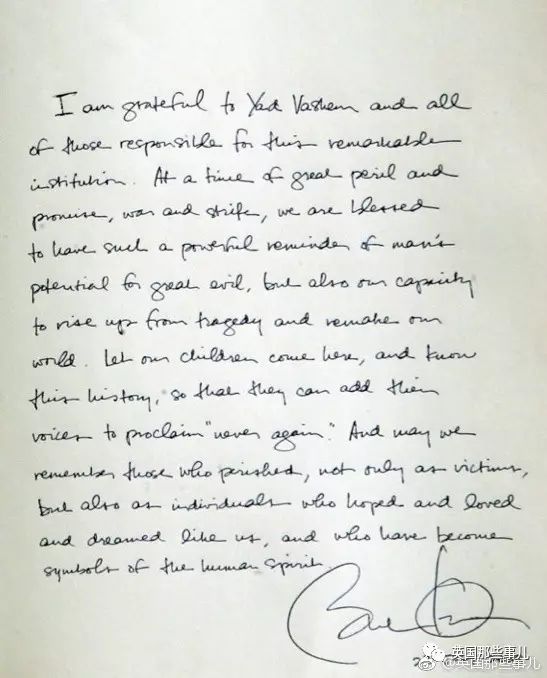 I am grateful to Yad Vashem and all
of those responsible for this remarkable
institution. At a time of great peril and
promise, war and strife, we are blessed
to have such a powerful reminder of man's
potential for great evil, but also our capacity
to rise up from tragedy and remake our
world. Let our children come here, and know
this history, so that they can add their
voices to proclaim "never again." And may we
remember those who perished, not only as victims,
but also as individuals who hoped and loved
and dreamed like us, and who have become
symbols of the human spirit.
英国那些事儿
@英国那些事儿